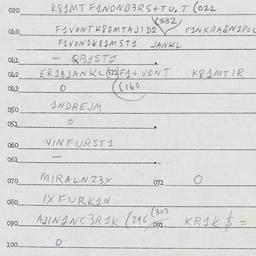 020 K81MT F1NOND3RS+TU,T (022
(332)
040 F1VONTK81MTAJID2 F1NKRASN1POL
F1VONTK81MST1 JANKL
041 — QB1ST1
042 ER1BJANKL(372)F1+VONT K81MTIR
043 0 (160
050 1NDREJM
051 0
060 VINFURST1
061 —
070 MIRALNZ3X 071 0
080 IXFURK1N
090 AJIN1NC3R1K (216 (302 091 KR1K $ =
100 0